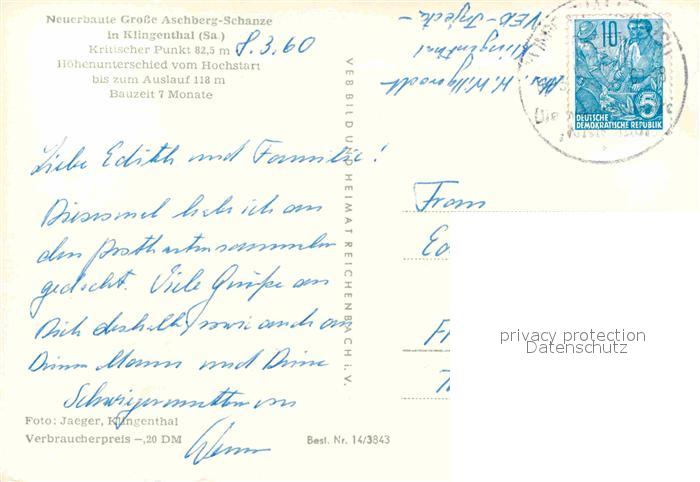 Neuerbaute Große Aschberg-Schanze
in Klingenthal (Sa.)
Kritischer Punkt 82,5 m
Höhenunterschied vom Hochstart
bis zum Auslauf 118 m
Bauzeit 7 Monate
8.3.60
Liebe Edith und Familie!
Diesesmal hab ich an
den Postkartensammler
gedacht. Viele Grüße an
Dich deshalb, sowie auch an
Deinen Mann und Deine
Schwiegermutter von
Foto: Jaeger, Klingenthal
Verbraucherpreis -,20 DM
Best. Nr. 14/3843
VEB BILD UND HEIMAT REICHENBACH i. V.
Klingenthal
VEB
10
5
DEUTSCHE
DEMOKRATISCHE REPUBLIK
Frau
privacy protection
Datenschutz